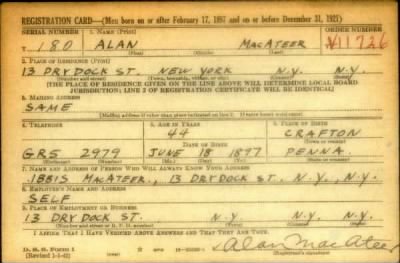 REGISTRATION CARD—(Men born on or after February 17, 1897 and on or before December 31, 1921)
SERIAL NUMBER 1. NAME (Print) ORDER NUMBER
T 180 ALAN MACATEER 11726
(First) (Middle) (Last)
2. PLACE OF RESIDENCE (Print)
13 DRYDOCK ST. NEW YORK N.Y. N.Y.
(Number and street) (Town, township, village, or city) (County) (State)
[THE PLACE OF RESIDENCE GIVEN ON THE LINE ABOVE WILL DETERMINE LOCAL BOARD
JURISDICTION; LINE 2 OF REGISTRATION CERTIFICATE WILL BE IDENTICAL]
3. MAILING ADDRESS
SAME
[Mailing address if other than place indicated on line 2. If same insert word same]
4. TELEPHONE 5. AGE IN YEARS 6. PLACE OF BIRTH
44 CRAFTON
DATE OF BIRTH (Town or county)
GR5 2979 JUNE 18 1897 PENNA.
(Exchange) (Number) (Mo.) (Day) (Yr.) (State or country)
7. NAME AND ADDRESS OF PERSON WHO WILL ALWAYS KNOW YOUR ADDRESS
MACATEER, 13 DRYDOCK ST., N.Y., N.Y.
8. EMPLOYER'S NAME AND ADDRESS
SELF
9. PLACE OF EMPLOYMENT OR BUSINESS
13 DRYDOCK ST. N.Y. N.Y.
(Number and street or R. F. D. number) (Town) (County) (State)
I AFFIRM THAT I HAVE VERIFIED ABOVE ANSWERS AND THAT THEY ARE TRUE.
D. S. S. Form 1
(Revised 1-1-42) (over) Alan MacAteer
(Registrant's signature)